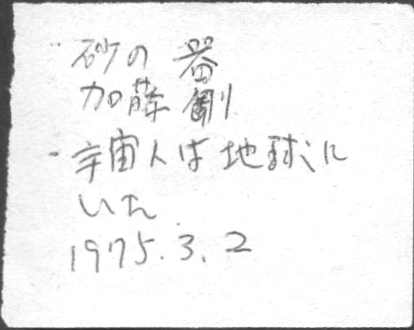 ・砂の器
加藤剛
・宇宙人は地球に
いた
1975.3.2